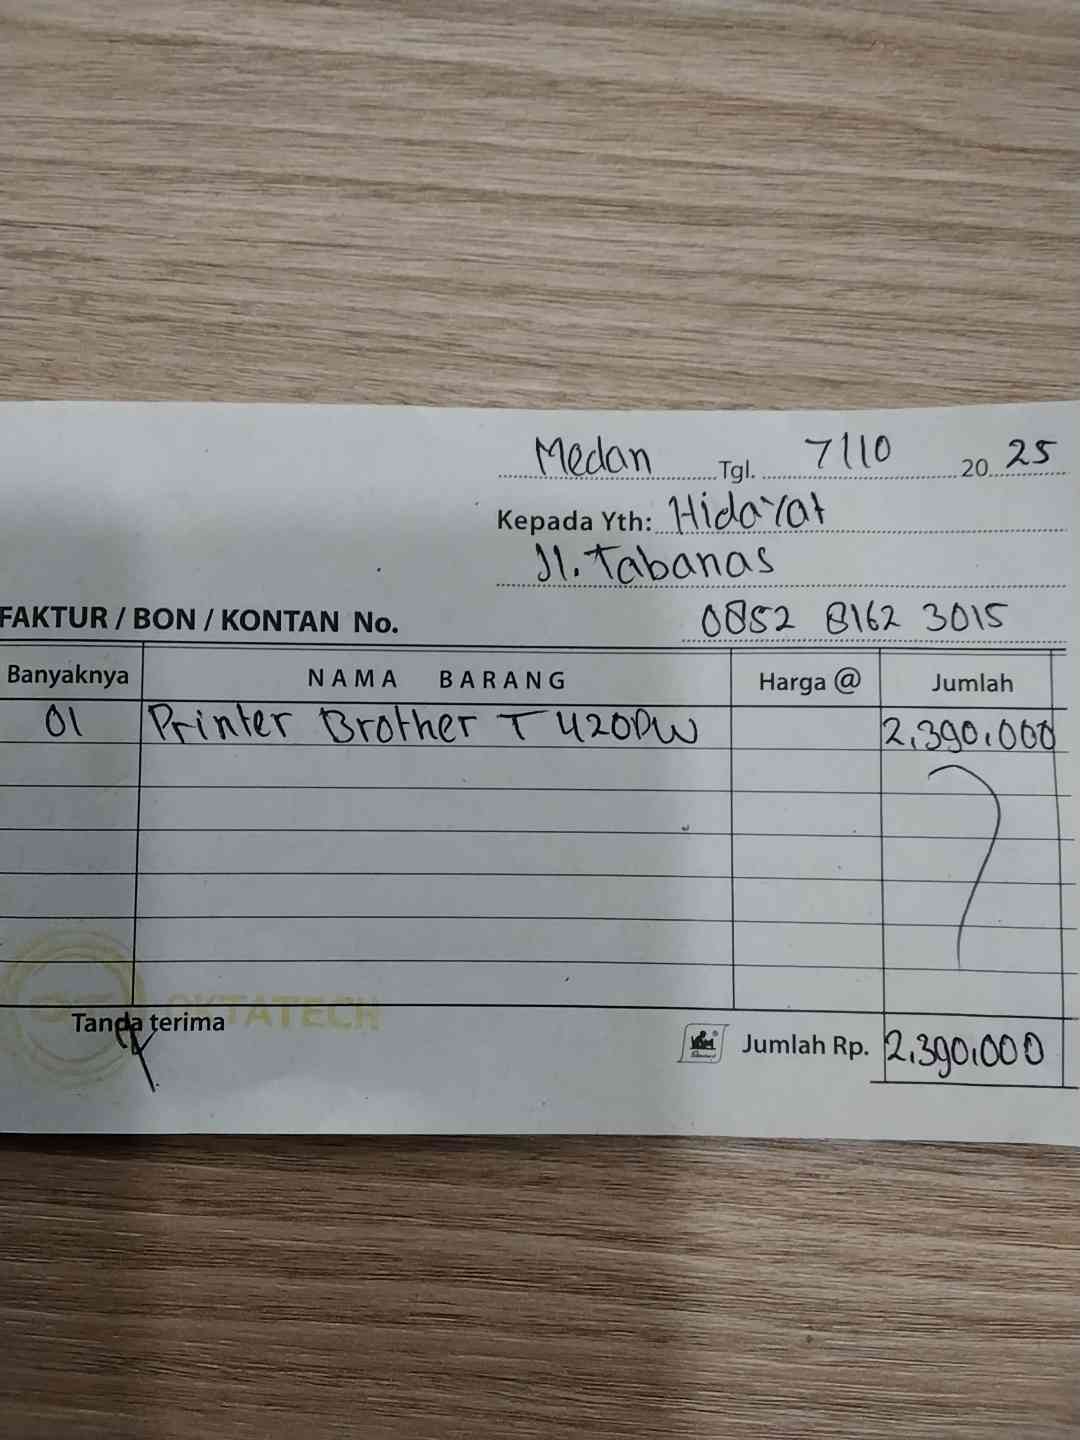 Medan Tgl. 7/10 20 25
Kepada Yth: Hidayat
Jl. Tabanas
FAKTUR / BON / KONTAN No. 0852 8162 3015
Banyaknya NAMA BARANG Harga @ Jumlah
01 Printer Brother T420DW 2.390.000
OKTATECH
Tanda terima
Jumlah Rp. 2.390.000